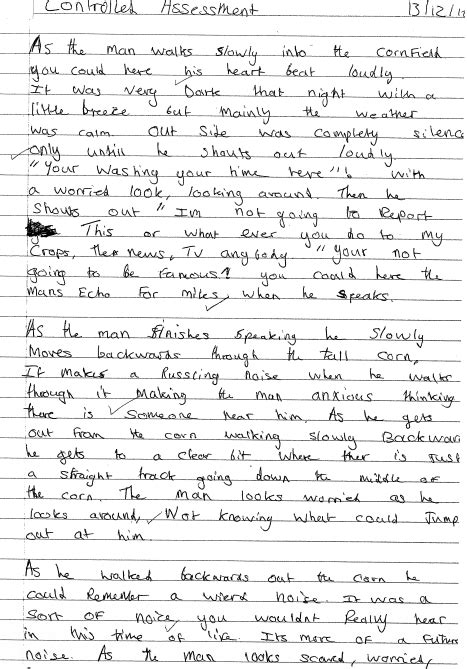 Controlled Assessment 13/12/1
As the man walks slowly into the cornfield
you could here his heart beat loudly.
It was very Dark that night with a
little breeze but mainly the weather
was calm. Out side was complety silence
only untill he shouts out loudly
"Your washing your time here"! with
a worried look, looking around. Then he
shouts out "Im not going to Report
This or what ever you do to my
Crops, the news, TV anybody. "Your not
going to be famous? you could here the
mans Echo for miles, when he speaks.
As the man finishes speaking he slowly
moves backwards through the tall corn,
It makes a Russling noise when he walks
through it making the man anxious thinking
there is someone near him. As he gets
out from the corn walking slowly Backwar
he gets to a clear bit where ther is Just
a straight track going down the middle of
the corn. The man looks worried as he
looks around, Not knowing what could Jump
out at him
As he walked backwards out the corn he
could Remember a wierd noise. It was a
sort of noice, you wouldnt Really hear
in this time of life. Its more of a Future
noise. As the man looks scared, worried,